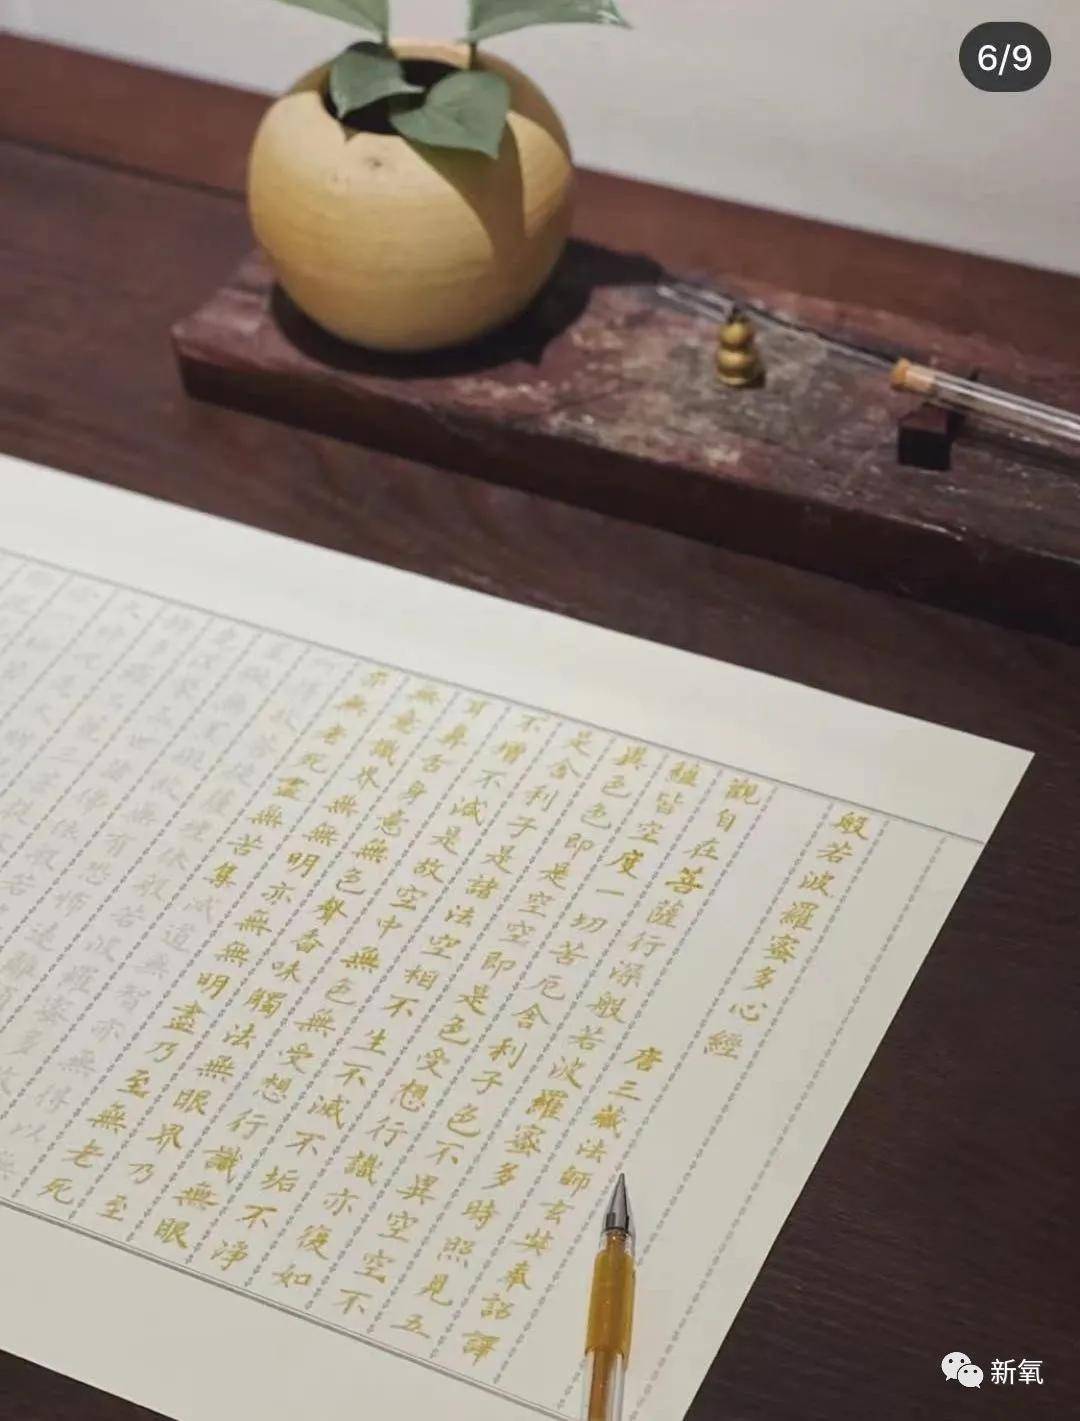 6/9
般若波羅蜜多心經
唐三藏法師玄奘奉詔譯
觀自在菩薩行深般若波羅蜜多時照見五
蘊皆空度一切苦厄舍利子色不異空空不
異色色即是空空即是色受想行識亦復如
是舍利子是諸法空相不生不滅不垢不淨
不增不減是故空中無色無受想行識無眼
耳鼻舌身意無色聲香味觸法無眼界乃至
無意識界無無明亦無無明盡乃至無老死
亦無老死盡無苦集滅道無智亦無得以無
故菩提薩埵依般若波羅蜜多故
故無有恐怖遠離
三世諸佛依般若
新氧